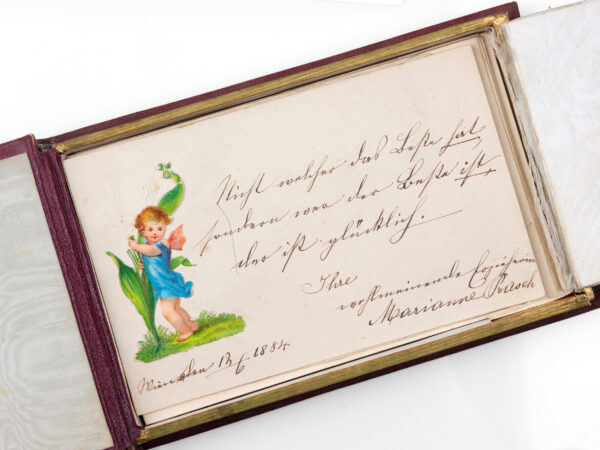 Nicht welcher das Beste hat
sondern wer der Beste ist,
der ist glücklich.
Ihre
wohlmeinende Erzieherin
Marianne Prasch
Wien den 12/6 1884